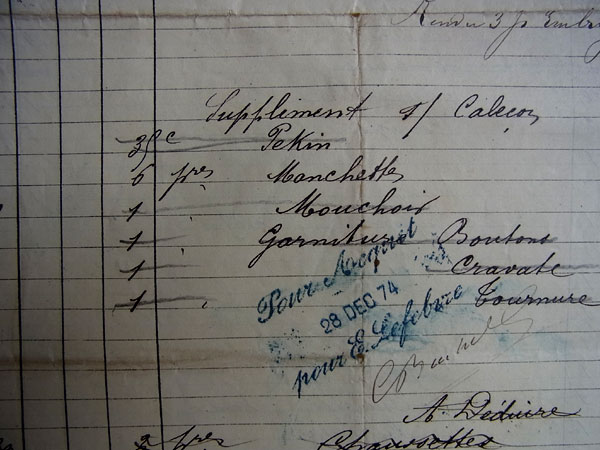 Rendu 3 p
Suppliment s/ Caleçon
35c Pekin
6 pres Manchettes
1 " Mouchoir
1 " Garniture Boutons
1 Cravate
1 " Tournure
Pour Acquit
28 DEC 74
pour E. Lefebvre
A Déduire
2 pres Chaussettes